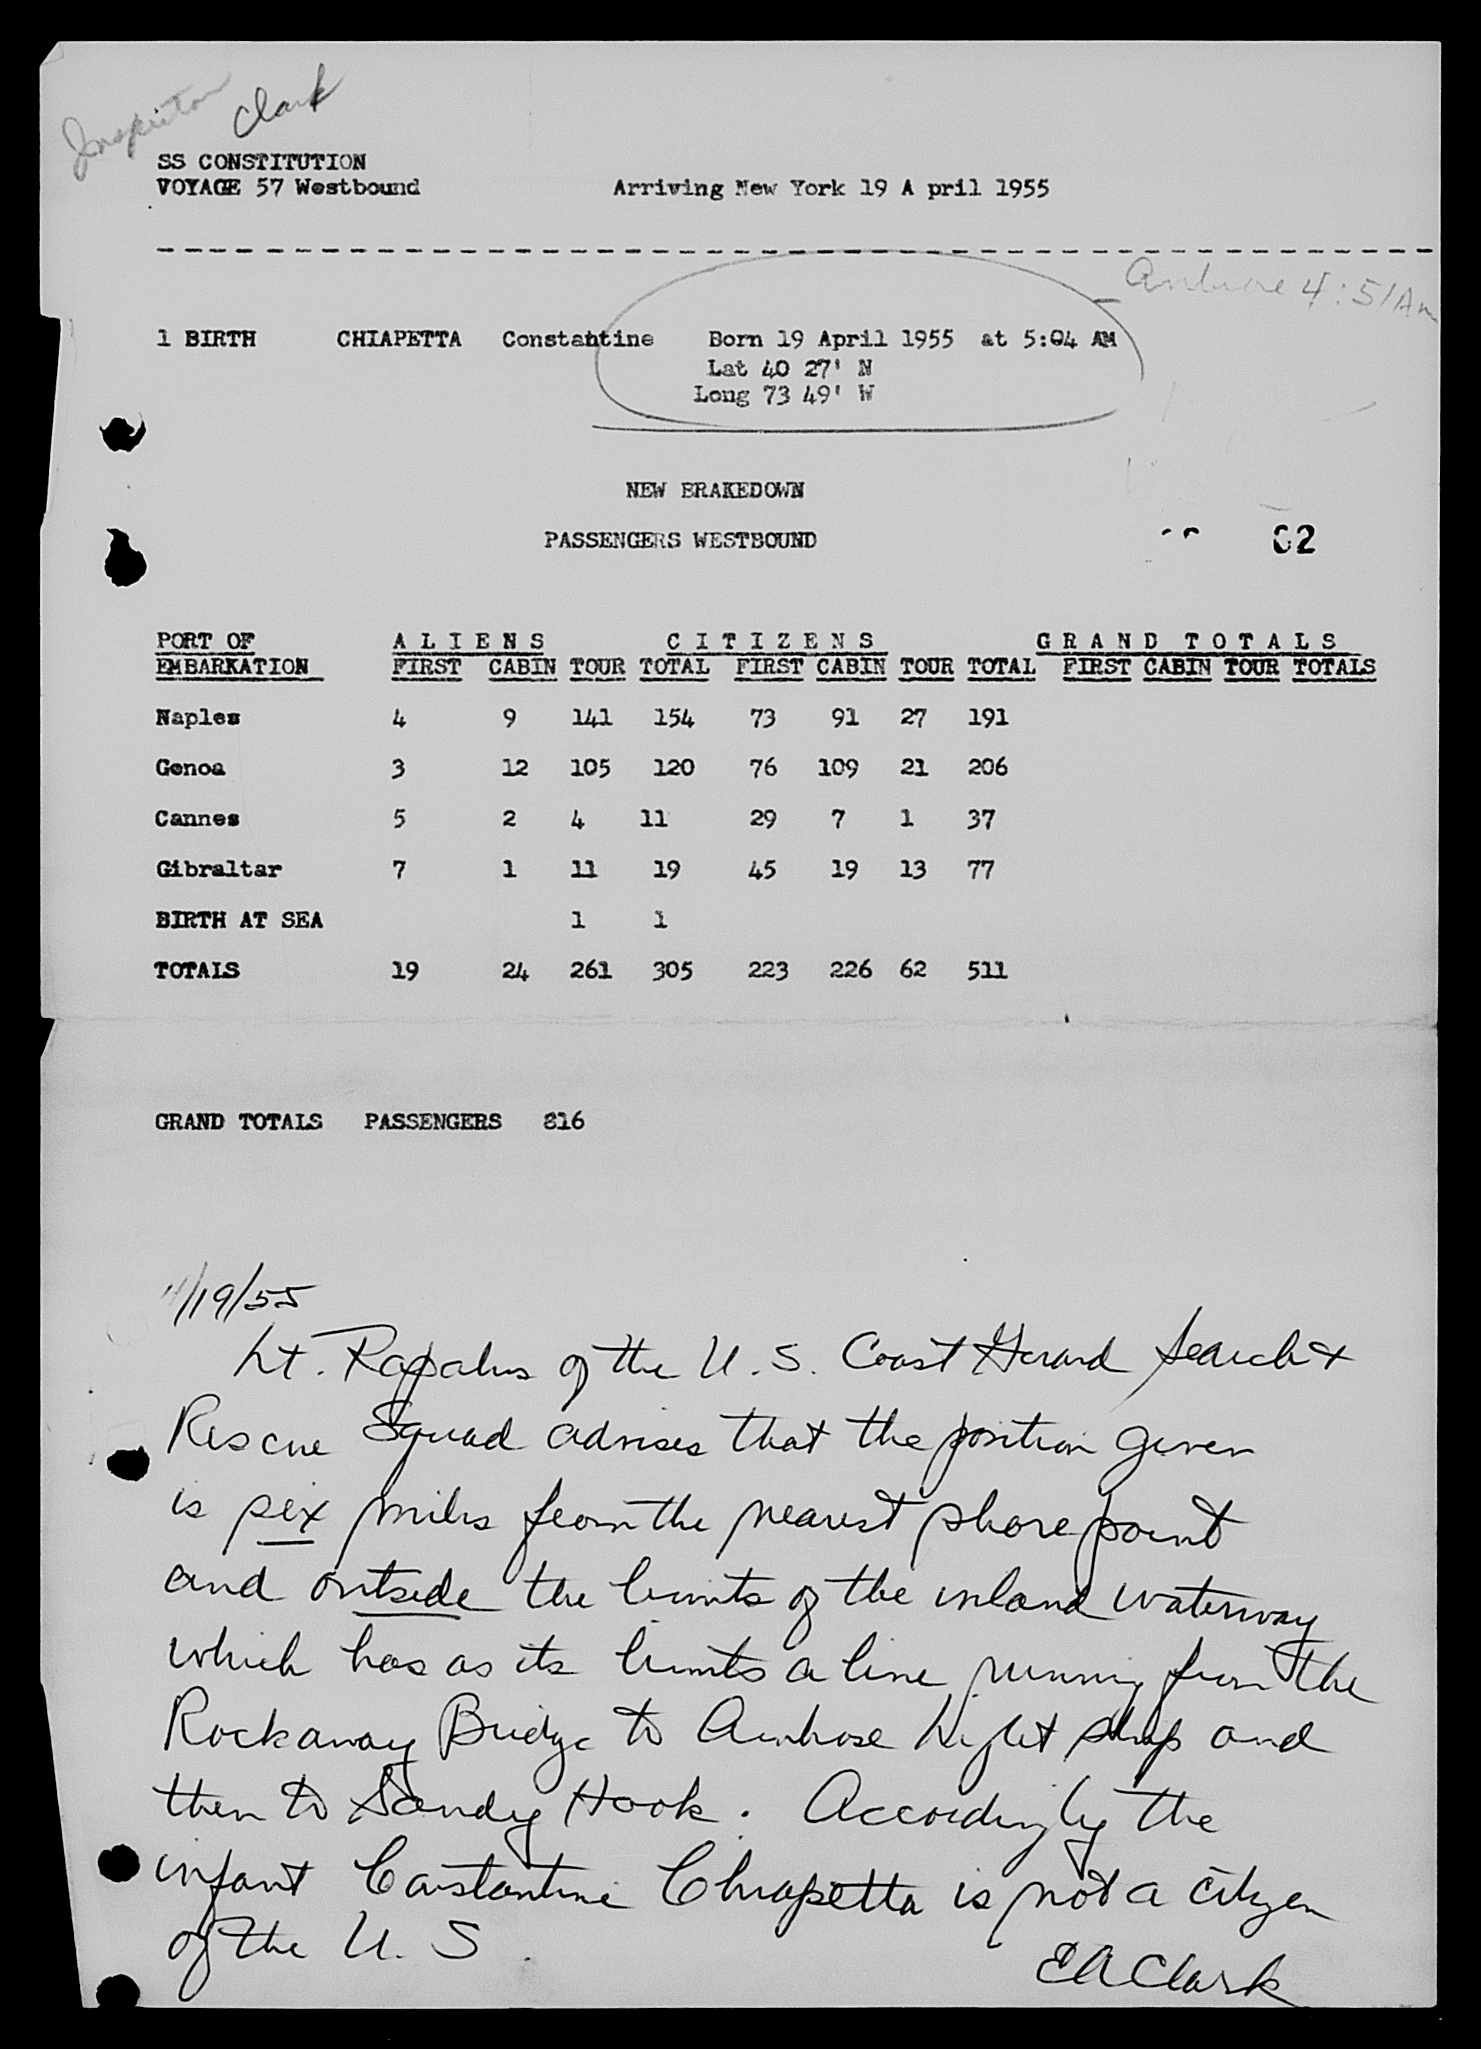 Inspector Clark
SS CONSTITUTION
VOYAGE 57 Westbound Arriving New York 19 A pril 1955
Ambrose 4:51 Am
1 BIRTH CHIAPETTA Constantine Born 19 April 1955 at 5:04 AM
Lat 40 27' N
Long 73 49' W
NEW BRAKEDOWN
PASSENGERS WESTBOUND 62
PORT OF A L I E N S C I T I Z E N S G R A N D T O T A L S
EMBARKATION FIRST CABIN TOUR TOTAL FIRST CABIN TOUR TOTAL FIRST CABIN TOUR TOTALS
Naples 4 9 141 154 73 91 27 191
Genoa 3 12 105 120 76 109 21 206
Cannes 5 2 4 11 29 7 1 37
Gibraltar 7 1 11 19 45 19 13 77
BIRTH AT SEA 1 1
TOTALS 19 24 261 305 223 226 62 511
GRAND TOTALS PASSENGERS 816
4/19/55
Lt. of the U. S. Coast Guard Search &
Rescue Squad advises that the position given
is six miles from the nearest shore point
and outside the limits of the inland waterway
which has as its limits a line running from the
Rockaway Bridge to Ambrose Light ship and
then to Sandy Hook. Accordingly the
infant Constantine Chiapetta is not a citizen
of the U. S.
EA Clark